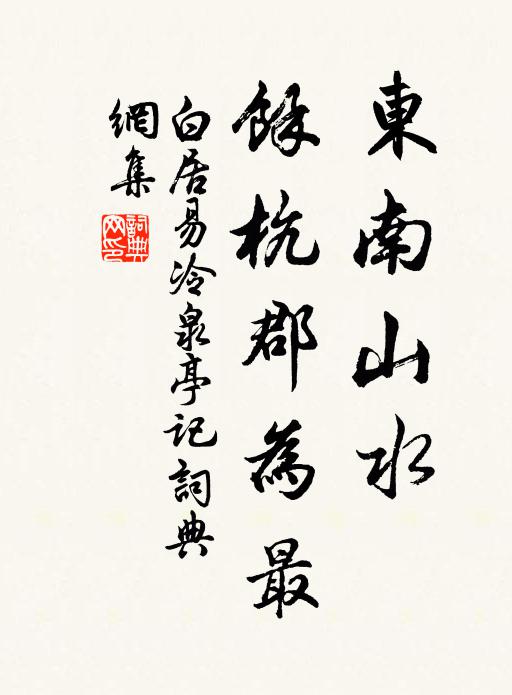 東南山水
餘杭郡為最
白居易冷泉亭記詞典
網集
詞典
网印